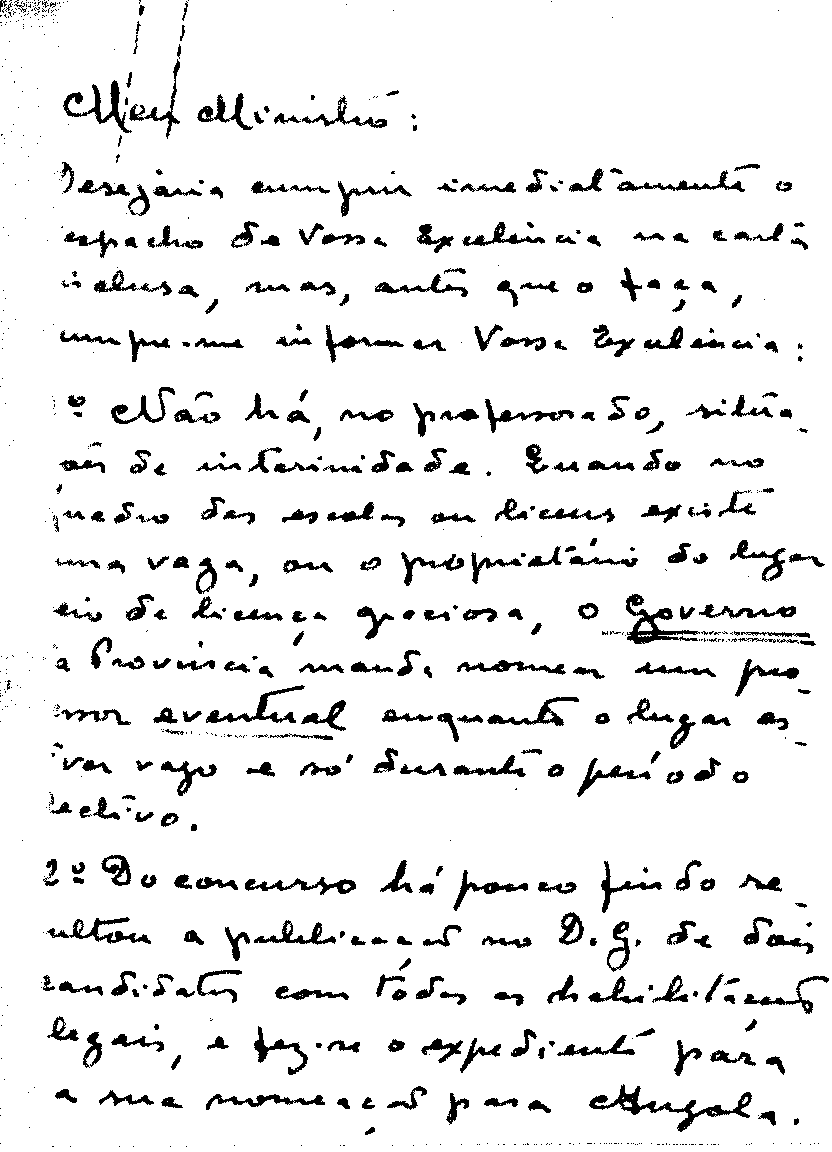 Meu Ministro:
Desejaria cumprir imediatamente o
espacho de Vossa Excelência na carta
inclusa, mas, antes que o faça,
umpre-me informar Vossa Excelência:
º Não há, no professorado, situa-
ões de interinidade. Quando no
quadro das escolas ou liceus existe
uma vaga, ou o proprietário do lugar
eio de licença graciosa, o Governo
a Província manda nomear um pro-
essor eventual enquanto o lugar es-
tiver vago e só durante o período
lectivo.
2º Do concurso há pouco findo re-
ultou a publicação no D. G. de dois
candidatos com tôdas as habilitações
legais, e fez-se o expediente para
a sua nomeação para Angola.